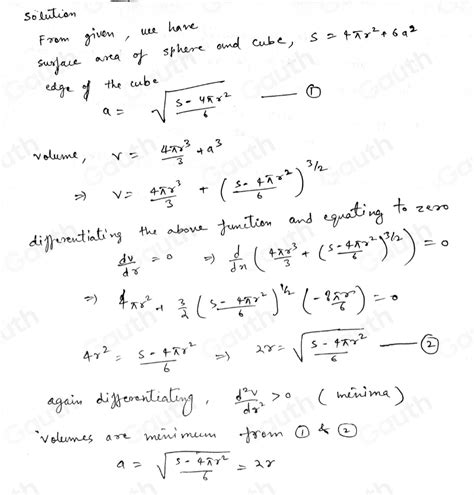 Solution
From given, we have
surface area of sphere and cube, S = 4πr² + 6a²
edge of the cube
a = √((S - 4πr²)/6) —— ①
volume, V = 4πr³/3 + a³
⇒ V = 4πr³/3 + ((S - 4πr²)/6)^(3/2)
differentiating the above function and equating to zero
dv/dr = 0 ⇒ d/dr (4πr³/3 + ((S - 4πr²)/6)^(3/2)) = 0
⇒ 4πr² + 3/2 ((S - 4πr²)/6)^(1/2) (-8πr/6) = 0
4r² = (S - 4πr²)/6 ⇒ 2r = √((S - 4πr²)/6) —— ②
again differentiating, d²v/dr² > 0 (minima)
volumes are minimum from ① & ②
a = √((S - 4πr²)/6) = 2r
Gauth